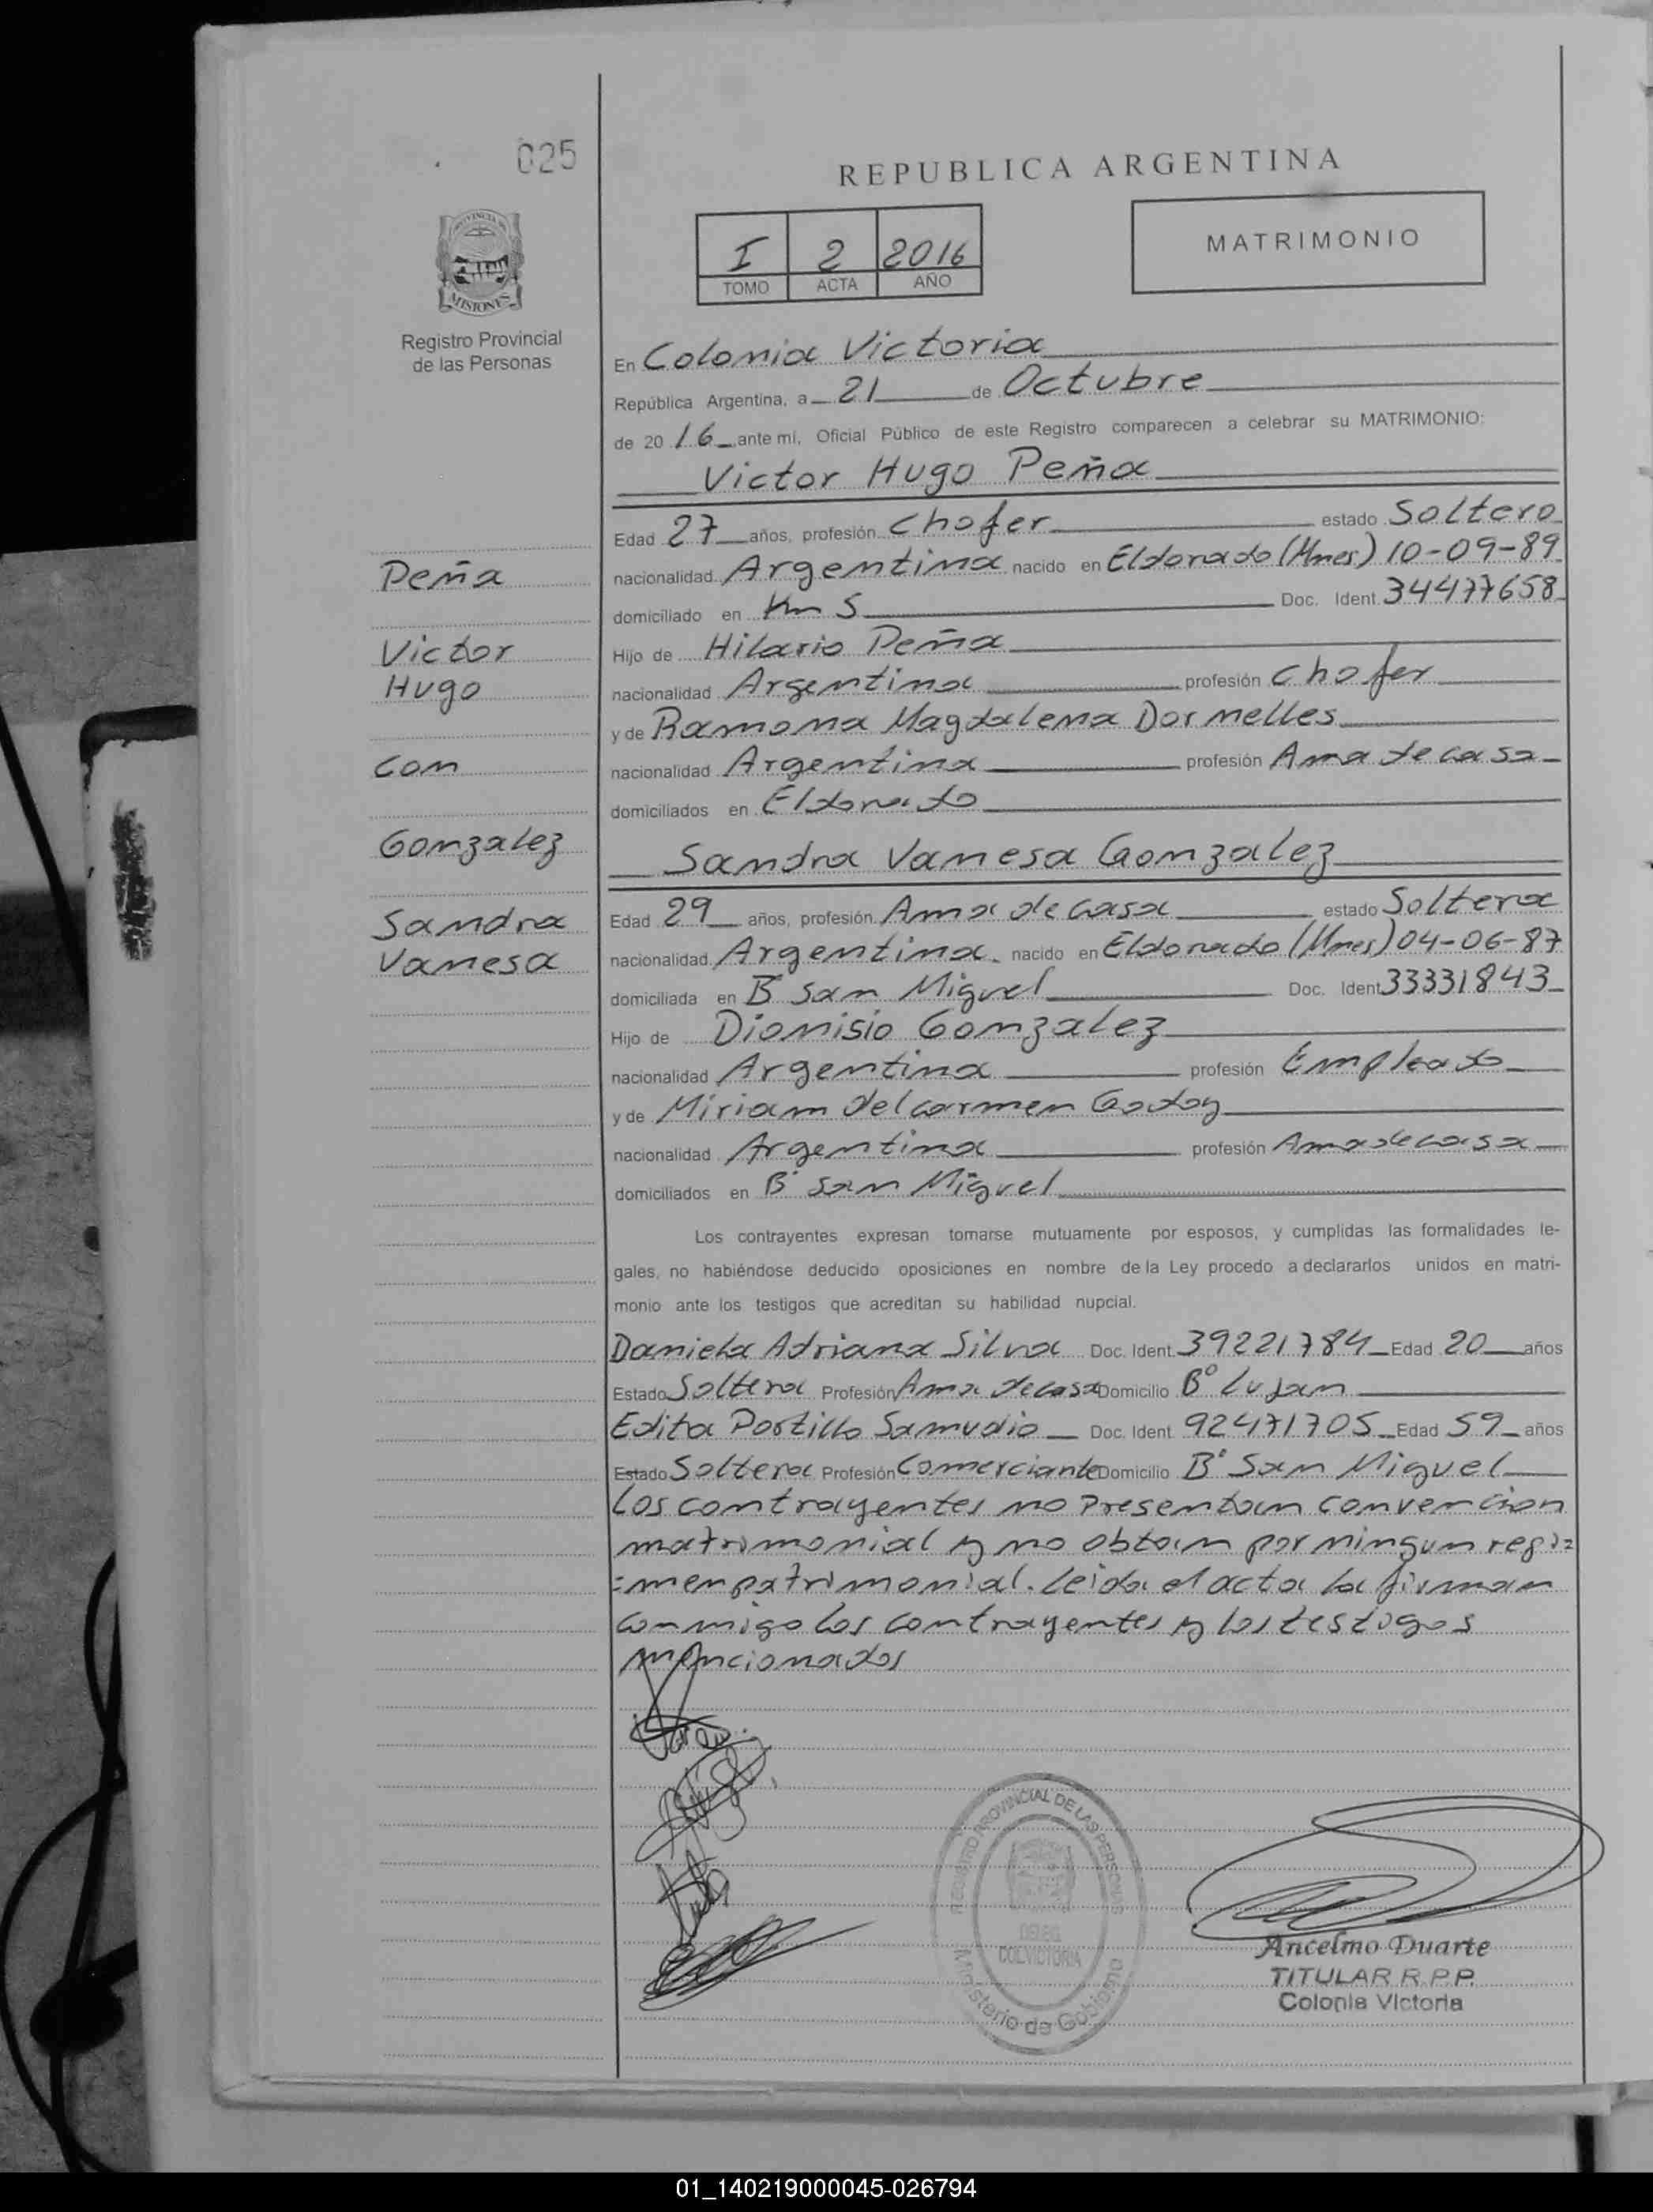 025
REPUBLICA ARGENTINA
PROVINCIA DE
MISIONES
Registro Provincial
de las Personas
I 2 2016
TOMO ACTA AÑO
MATRIMONIO
En Colonia Victoria
República Argentina, a 21 de Octubre
de 20 16 ante mi, Oficial Público de este Registro comparecen a celebrar su MATRIMONIO:
Victor Hugo Peña
Edad 27 años, profesión Chofer estado Soltero
nacionalidad Argentina nacido en Eldorado (Mnes) 10-09-89
domiciliado en Km 5 Doc. Ident 34477658
Hijo de Hilario Peña
nacionalidad Argentina profesión Chofer
y de Ramona Magdalena Dornelles
nacionalidad Argentina profesión Ama de casa
domiciliados en Eldorado
Sandra Vanesa Gonzalez
Edad 29 años, profesión Ama de casa estado Soltera
nacionalidad Argentina nacido en Eldorado (Mnes) 04-06-87
domiciliada en B° San Miguel Doc. Ident 33331843
Hijo de Dionisio Gonzalez
nacionalidad Argentina profesión Empleado
y de Miriam del carmen Godoy
nacionalidad Argentina profesión Ama de casa
domiciliados en B° San Miguel
Peña
Victor
Hugo
con
Gonzalez
Sandra
Vanesa
Los contrayentes expresan tomarse mutuamente por esposos, y cumplidas las formalidades le-
gales, no habiéndose deducido oposiciones en nombre de la Ley procedo a declararlos unidos en matri-
monio ante los testigos que acreditan su habilidad nupcial.
Daniela Adriana Silva Doc. Ident. 39221784 Edad 20 años
Estado Soltera Profesión Ama de casa Domicilio B° Lujan
Edita Portillo Samudio Doc. Ident 92471705 Edad 59 años
Estado Soltera Profesión Comerciante Domicilio B° San Miguel
Los contrayentes no presentan convencion
matrimonial y no obtan por ningun regi=
=men patrimonial. Leida el acta la firman
conmigo los contrayentes y los testigos
mencionados
REGISTRO PROVINCIAL DE LAS PERSONAS
DELEG.
COL VICTORIA
Ministerio de Gobierno
Ancelmo Duarte
TITULAR R.P.P.
Colonia Victoria
01_140219000045-026794